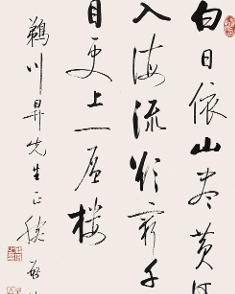 白日依山尽黄河
入海流欲穷千
目更上一层楼
鵜川昇先生正